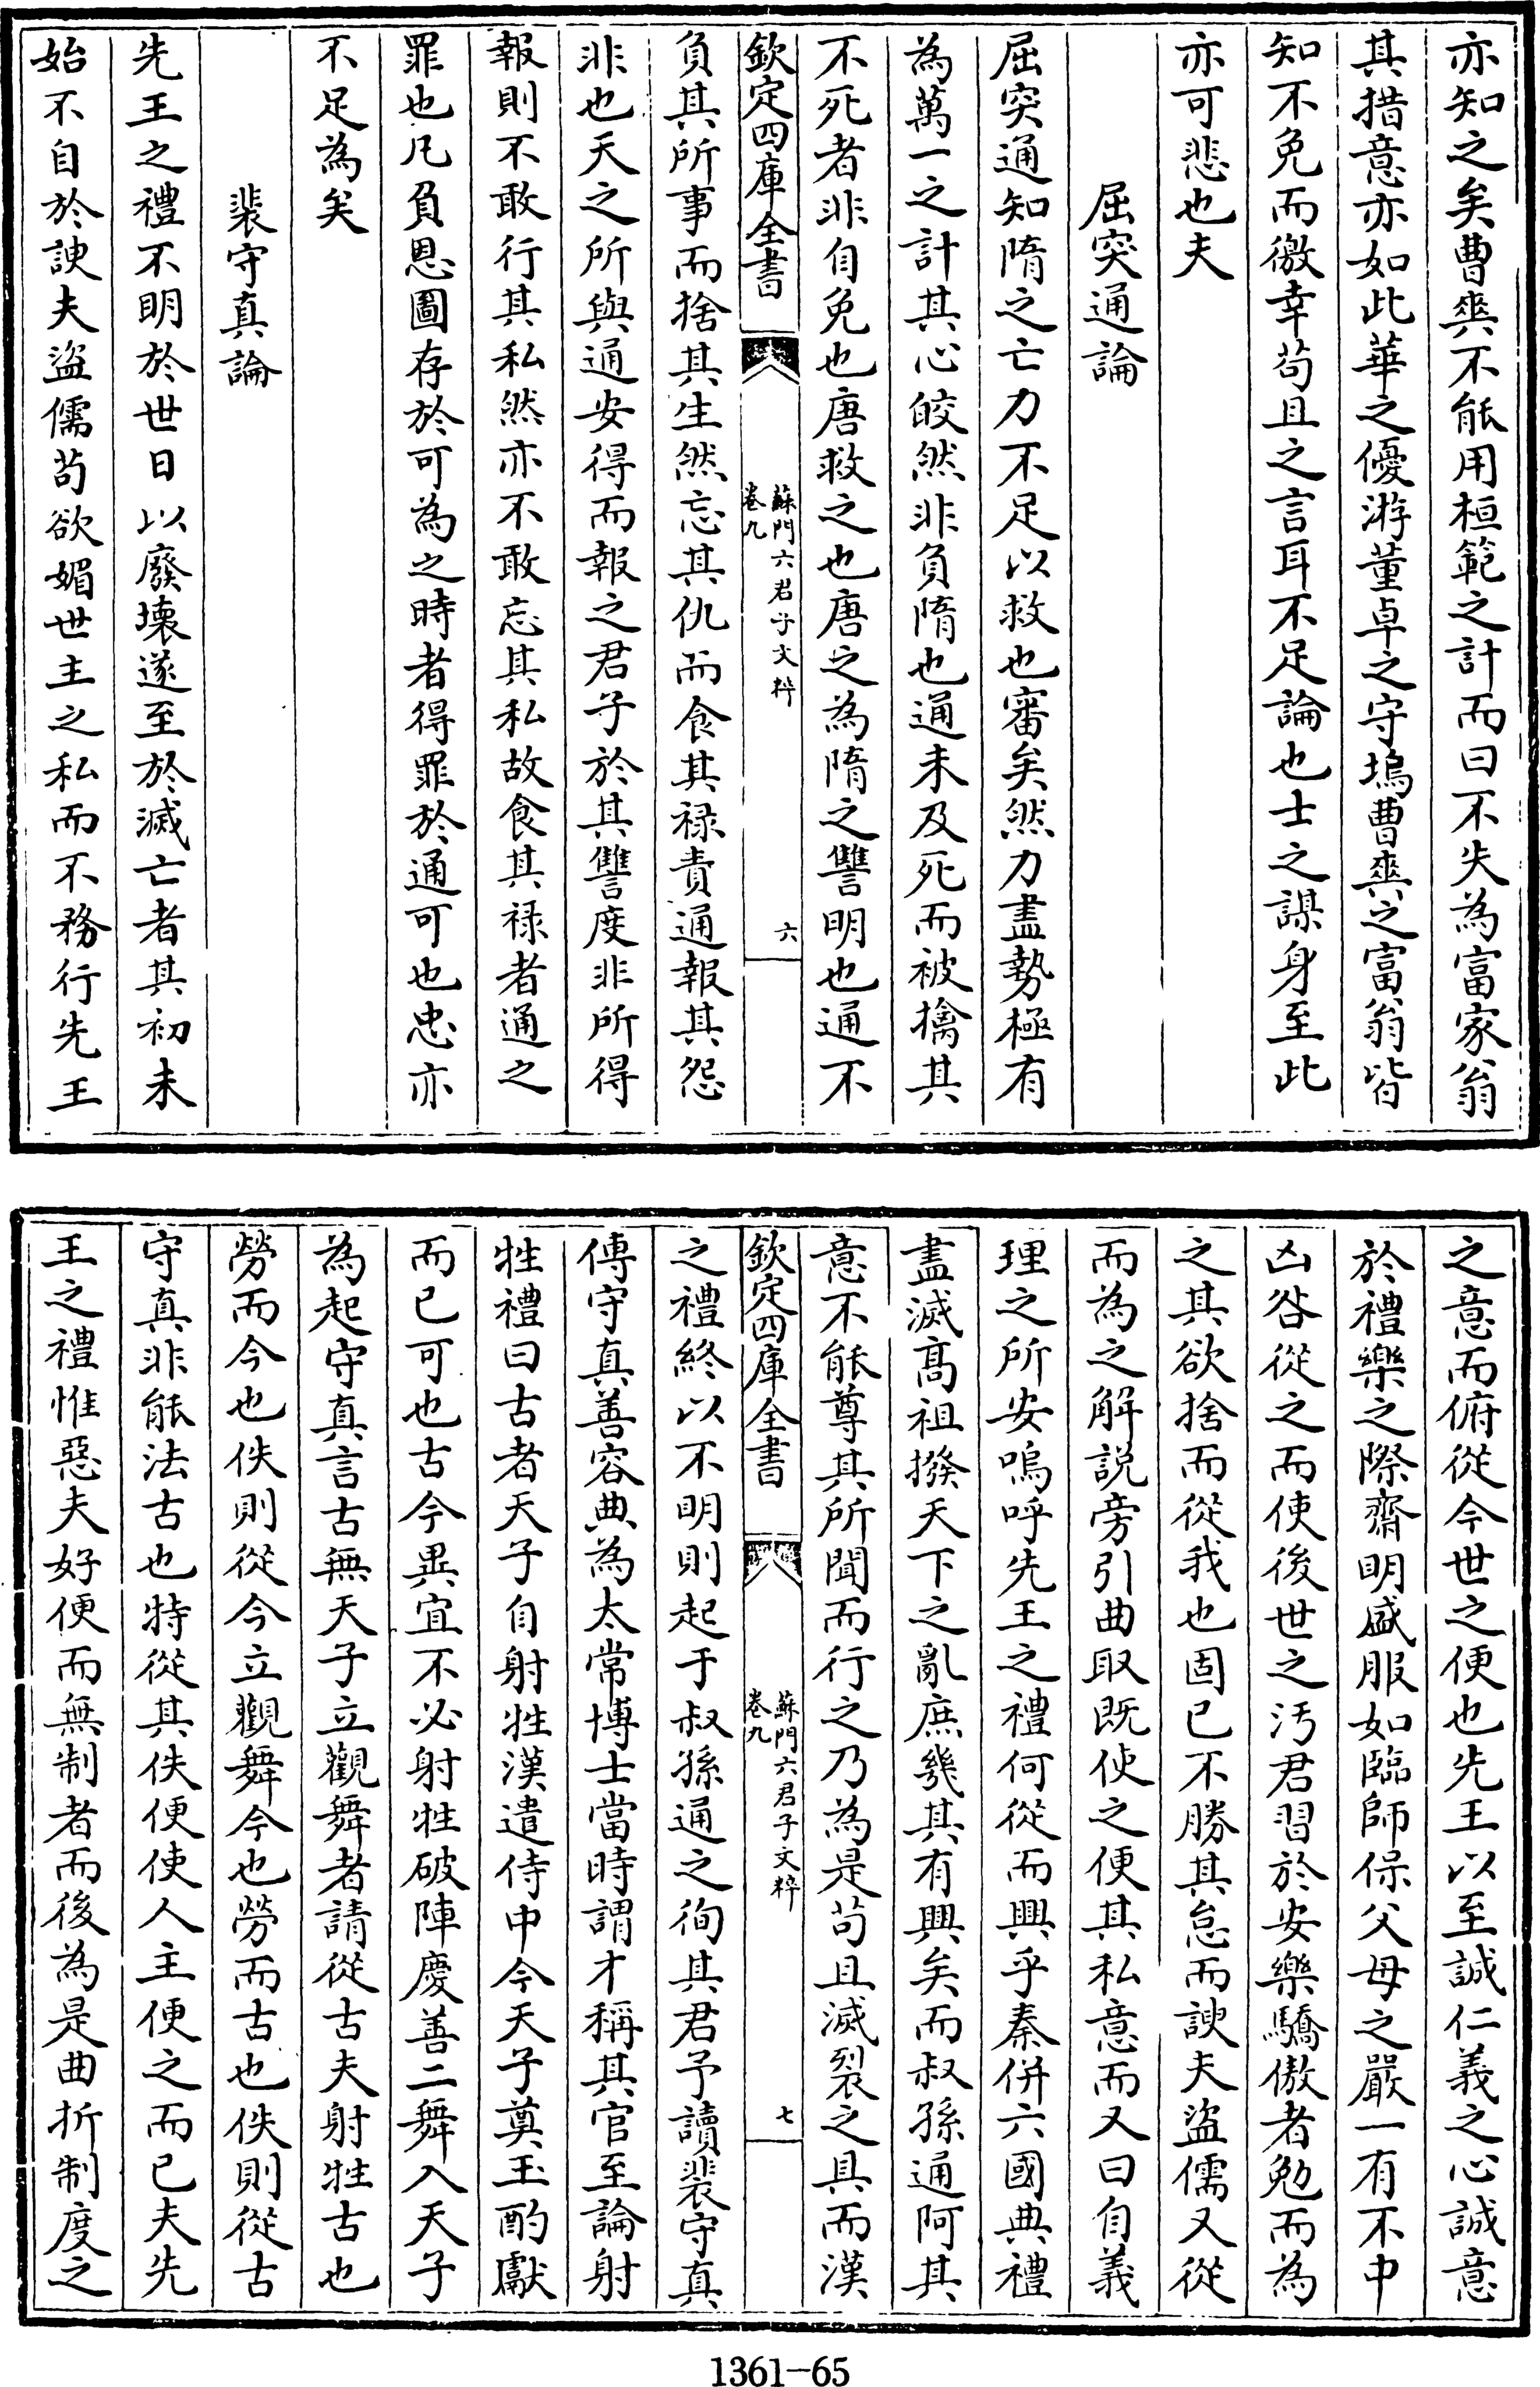 亦知之矣曹爽不能用桓範之計而曰不失為富家翁
其措意亦如此華之優游董卓之守塢曹爽之富翁皆
知不免而徼幸苟且之言耳不足論也士之謀身至此
亦可悲也夫
屈突通論
屈突通知隋之亡力不足以救也審矣然力盡勢極有
為萬一之計其心皎然非負隋也通未及死而被擒其
不死者非自免也唐救之也唐之為隋之讐明也通不
欽定四庫全書
蘇門六君子文粹
卷九
六
負其所事而捨其生然忘其仇而食其禄責通報其怨
非也天之所與通安得而報之君子於其讐度非所得
報則不敢行其私然亦不敢忘其私故食其禄者通之
罪也凡負恩圖存於可為之時者得罪於通可也忠亦
不足為矣
裴守真論
先王之禮不明於世日以廢壊遂至於滅亡者其初未
始不自於諛夫盜儒苟欲媚世主之私而不務行先王
之意而俯從今世之便也先王以至誠仁義之心誠意
於禮樂之際齋明盛服如臨師保父母之嚴一有不中
凶咎從之而使後世之汚君習於安樂驕傲者勉而為
之其欲捨而從我也固已不勝其怠而諛夫盜儒又從
而為之解説旁引曲取既使之便其私意而又曰自義
理之所安嗚呼先王之禮何從而興乎秦併六國典禮
盡滅髙祖撥天下之亂庶幾其有興矣而叔孫通阿其
意不能尊其所聞而行之乃為是苟且滅裂之具而漢
欽定四庫全書
蘇門六君子文粹
卷九
七
之禮終以不明則起于叔孫通之徇其君予讀裴守真
傳守真善容典為太常博士當時謂才稱其官至論射
牲禮曰古者天子自射牲漢遣侍中今天子奠玉酌獻
而已可也古今異宜不必射牲破陣慶善二舞入天子
為起守真言古無天子立觀舞者請從古夫射牲古也
勞而今也佚則從今立觀舞今也勞而古也佚則從古
守真非能法古也特從其佚便使人主便之而已夫先
王之禮惟惡夫好便而無制者而後為是曲折制度之
1361-65